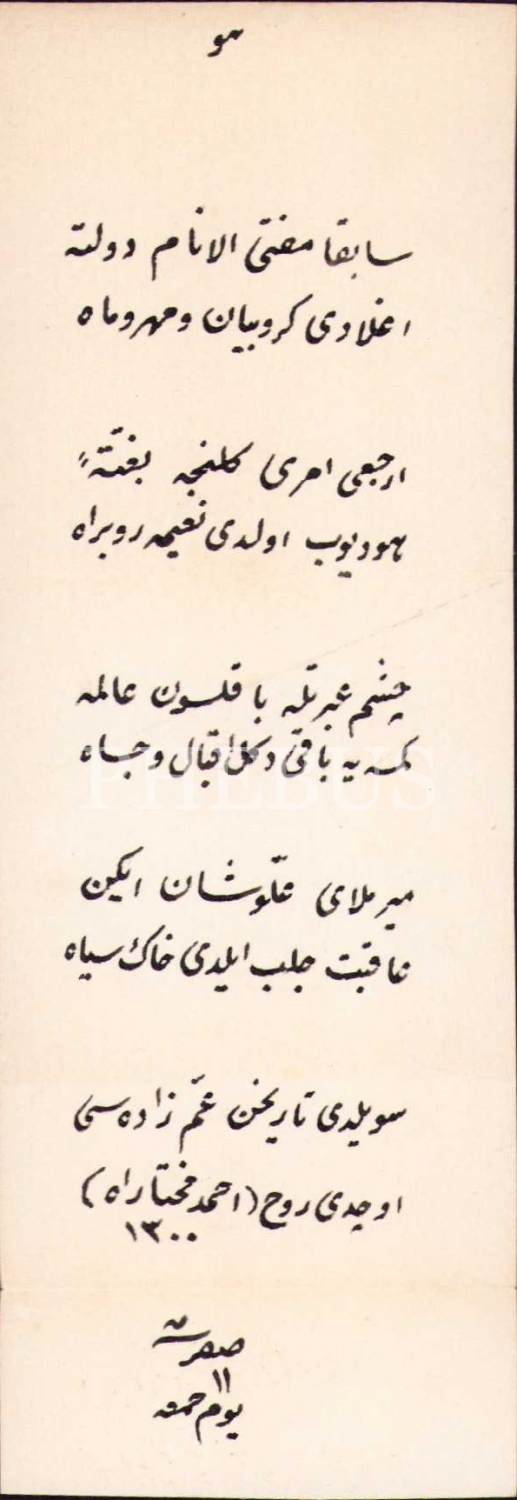 هو
سابقا مفتی الانام دولته
اغلادی کروبیان ومهروماه
ارجعی امری کلنجه بغتةً
هودیوب اولدی نعیمه روبراه
چشم عبرتله باقلسون عالمه
کمسه یه باقی دکل اقبال وجاه
میرملای علّوشان ایکن
عاقبت جلب ایلدی خاك سیاه
سویلدی تاریخن عمّ زاده سی
اوچدی روح (احمد مختاراه)
١٣٠٠
صفر
١١
یوم جمعه
PHEBUS